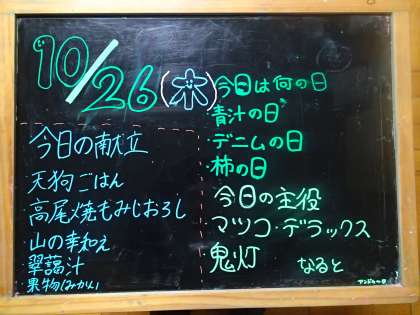 10/26(木)
今日の献立
天狗ごはん
高尾焼もみじおろし
山の幸和え
翠藹汁
果物(みかん)
今日は何の日
・青汁の日
・デニムの日
・柿の日
今日の主役
マツコ・デラックス
鬼灯
なると